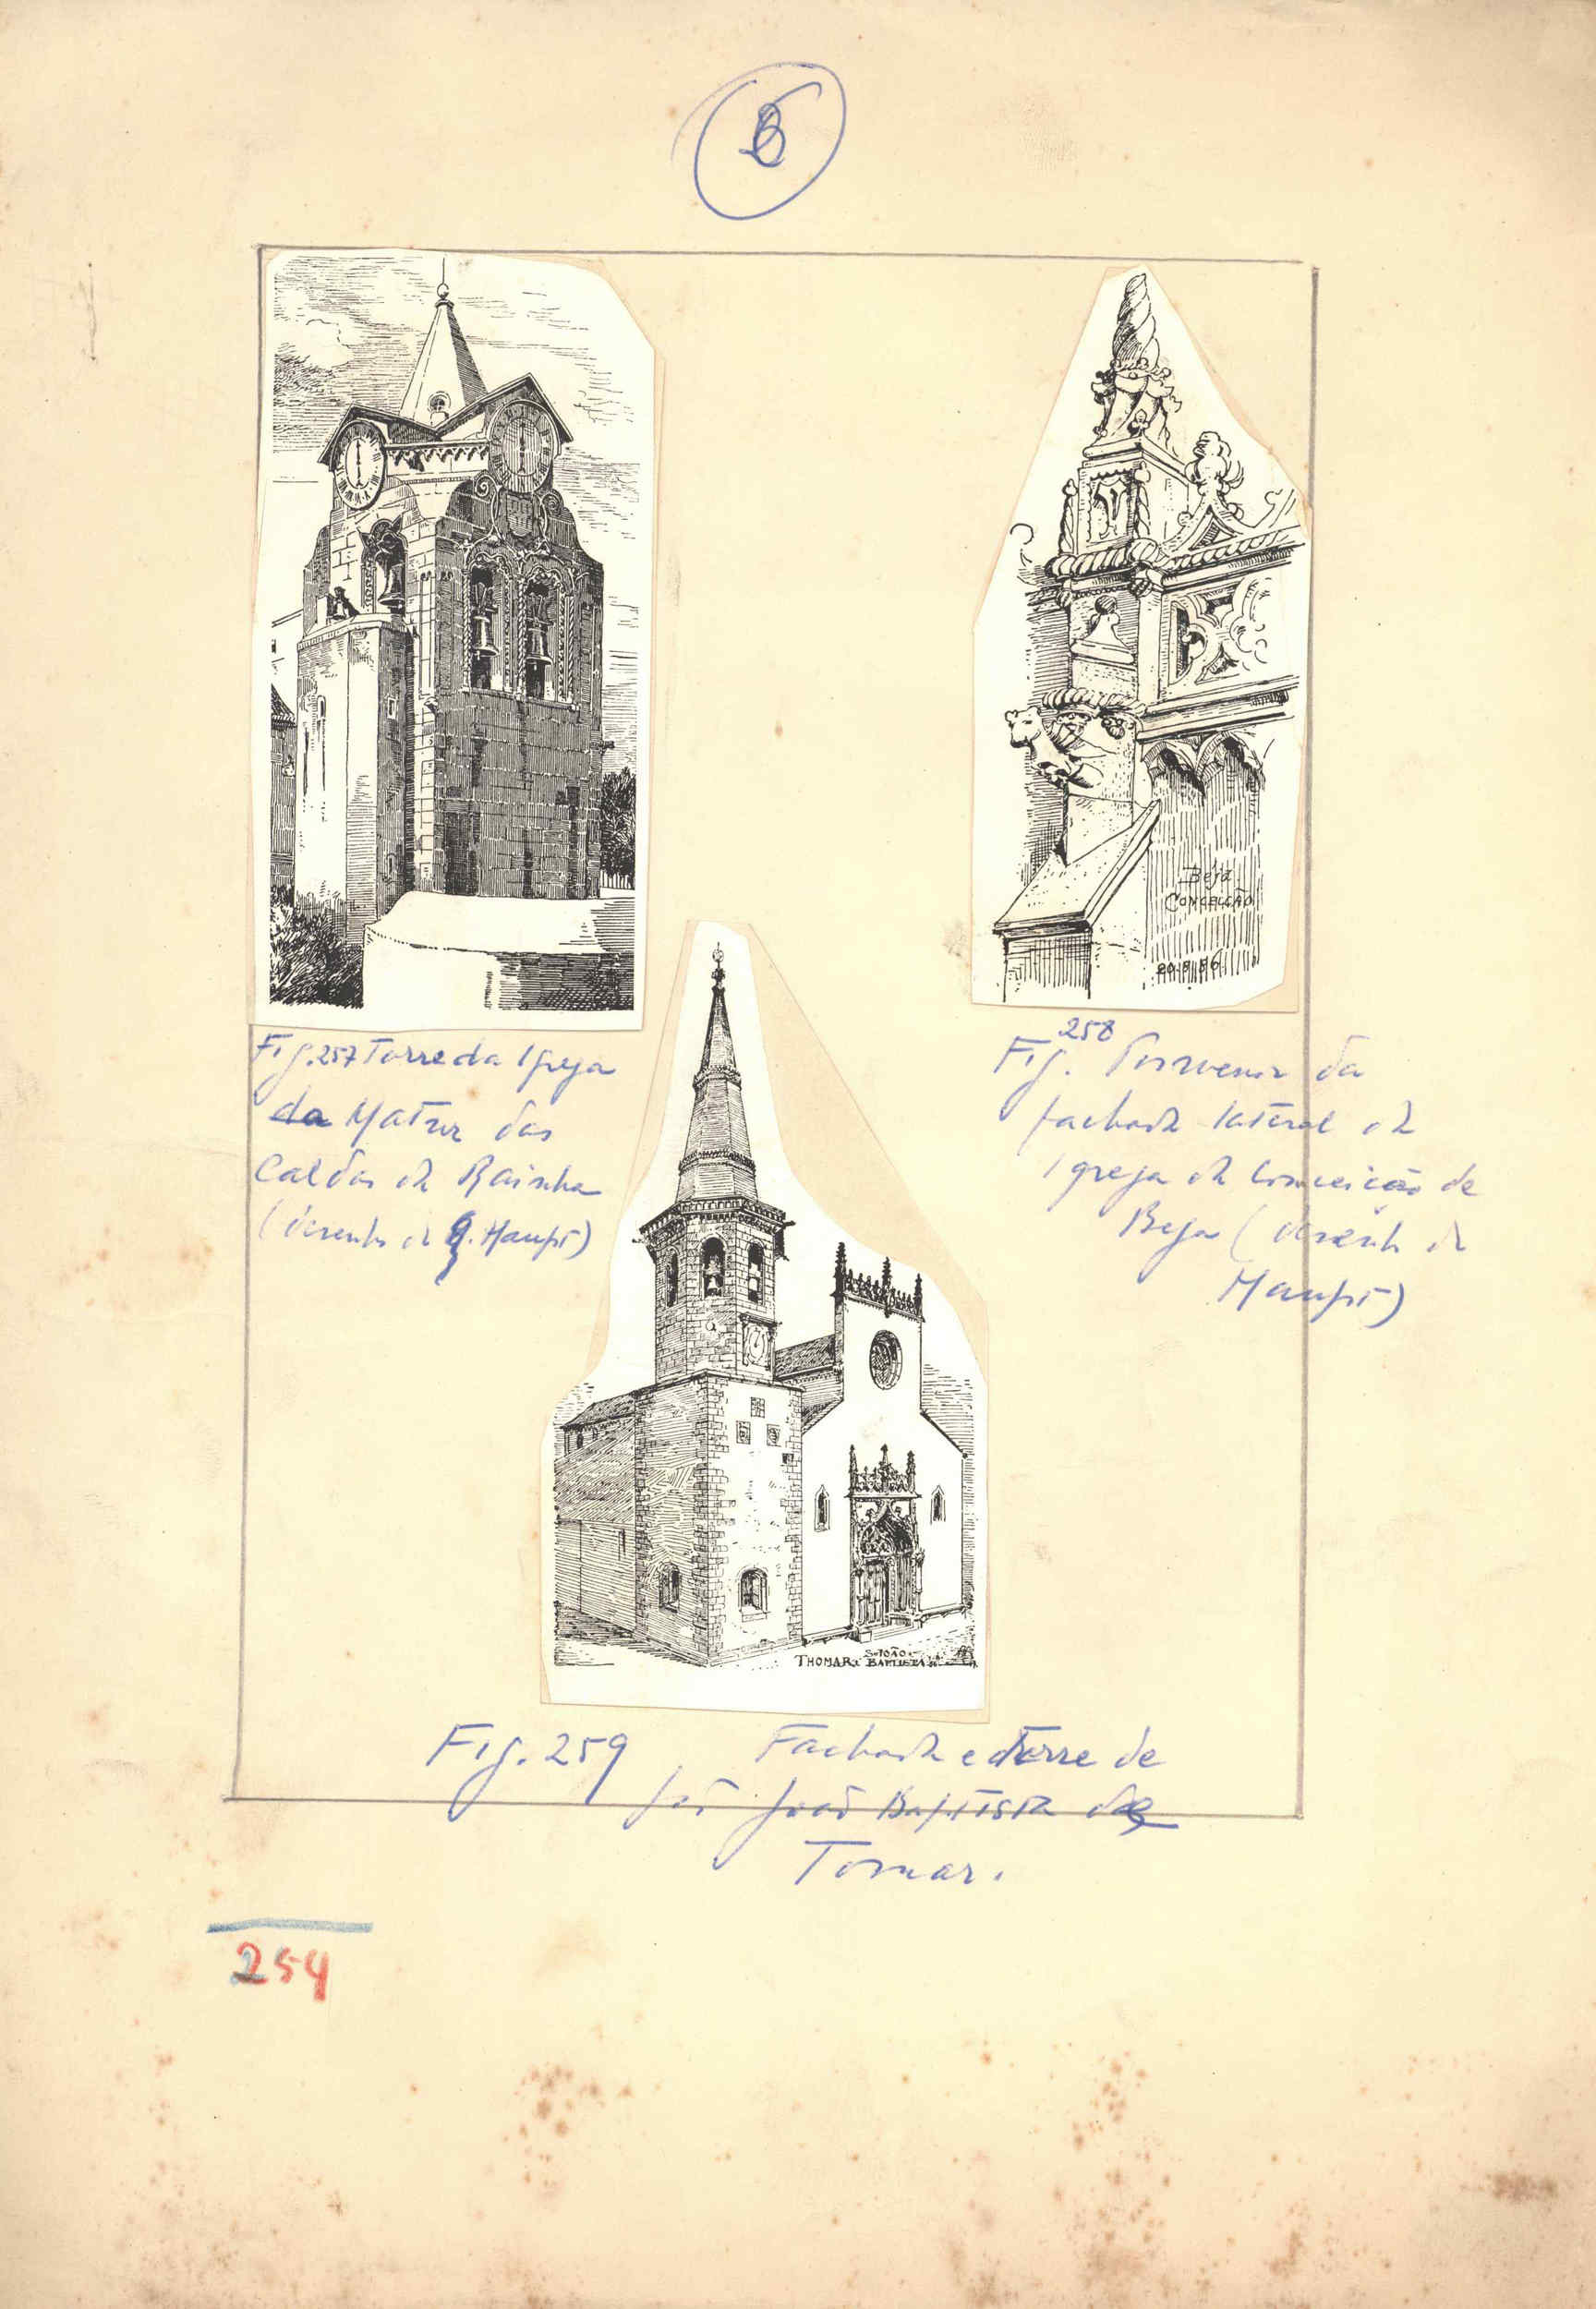 6
Beja
Conceição
20.9.86
Fig. 257 Torre da Igreja
da Matriz das
Caldas da Rainha
(desenho de A. Haupt)
258
Fig. Pormenor da
fachada lateral da
Igreja da Conceição de
Beja (desenho de
Haupt)
THOMAR: S. JOÃO
BAPTISTA
Fig. 259 Fachada e Torre de
São João Baptista de
Tomar.
254